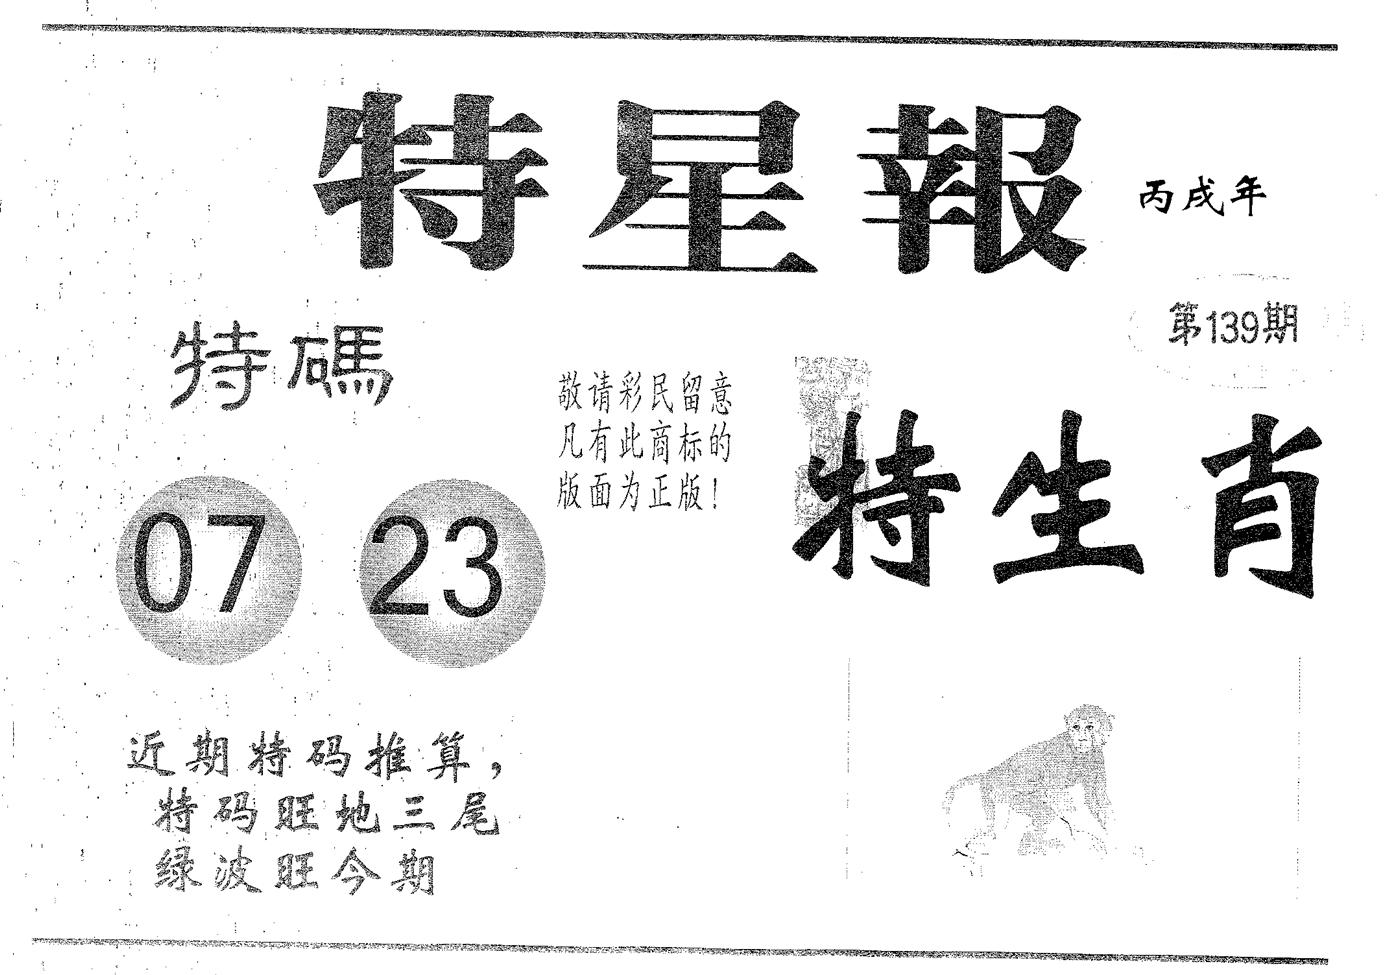 特星報
丙戌年
第139期
特碼
敬请彩民留意
凡有此商标的
版面为正版！
特生肖
07 23
近期特码推算，
特码旺地三尾
绿波旺今期